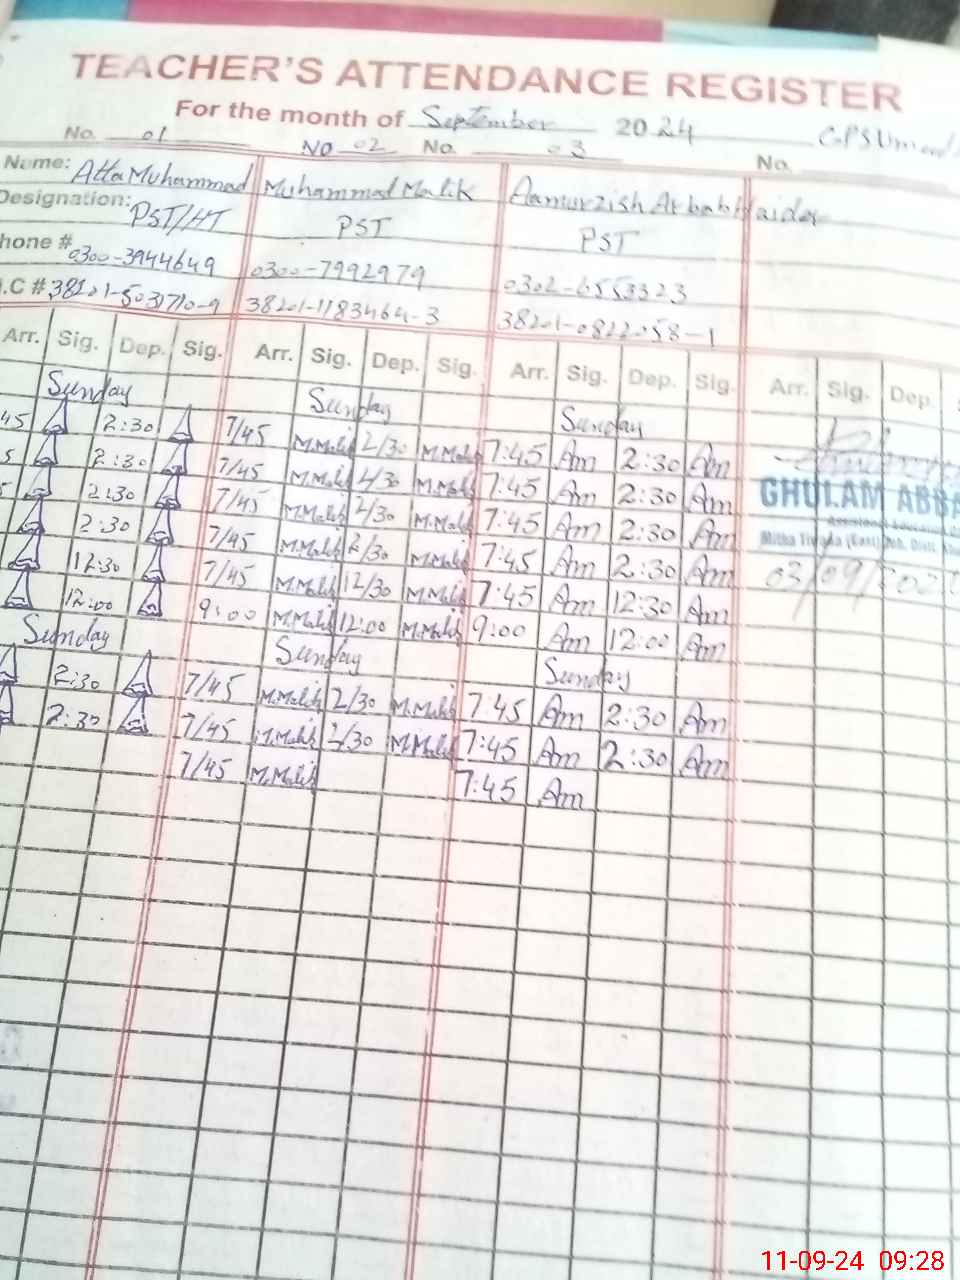 TEACHER'S ATTENDANCE REGISTER
For the month of September 2024 GPS
No. 01 No 02 No. 03 No.
Name: Atta Muhammad Muhammad Malik Aamurzish Arbab Haider
Designation: PST/HT PST PST
hone # 0300-3944649 0300-7992979 0302-6553323
.C # 38201-5031710-9 38201-1183464-3 38201-0822058-1
Arr. Sig. Dep. Sig. Arr. Sig. Dep. Sig. Arr. Sig. Dep. Sig. Arr. Sig. Dep.
Sunday Sunday Sunday
45 2:30 7/45 M.Malik 2/30 M.Malik 7:45 Am 2:30 Am
5 2:30 7/45 M.Malik 2/30 M.Malik 7:45 Am 2:30 Am
GHULAM ABBA
5 2:30 7/45 M.Malik 2/30 M.Malik 7:45 Am 2:30 Am
2:30 7/45 M.Malik 2/30 M.Malik 7:45 Am 2:30 Am
12:30 7/45 M.Malik 12/30 M.Malik 7:45 Am 12:30 Am
03/09/202
12:00 9:00 M.Malik 12:00 M.Malik 9:00 Am 12:00 Am
Sunday Sunday Sunday
2:30 7/45 M.Malik 2/30 M.Malik 7:45 Am 2:30 Am
2:30 7/45 M.Malik 2/30 M.Malik 7:45 Am 2:30 Am
7/45 M.Malik 7:45 Am
11-09-24 09:28